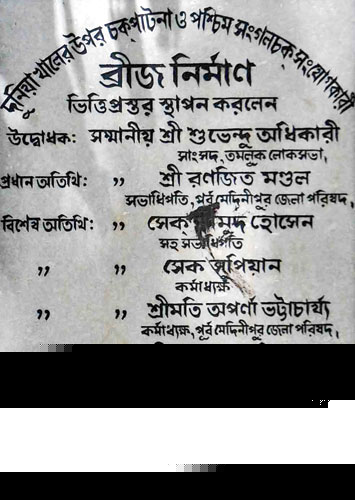 দুনিয়া খালের উপর চকপাটনা ও পশ্চিম সংগলচক সংযোগকারী
ব্রীজ নির্মাণ
ভিত্তিপ্রস্তর স্থাপন করলেন
উদ্বোধক: সম্মানীয় শ্রী শুভেন্দু অধিকারী
সাংসদ, তমলুক লোকসভা,
প্রধান অতিথি: ,, শ্রী রণজিত মণ্ডল
সভাধিপতি, পূর্ব মেদিনীপুর জেলা পরিষদ,
বিশেষ অতিথি: ,, সেক হোসেন
সহ সভাধিপতি
,, ,, সেক সুপিয়ান
কর্মাধ্যক্ষ
,, ,, শ্রীমতি অপর্ণা ভট্টাচার্য্য
কর্মাধ্যক্ষ, পূর্ব মেদিনীপুর জেলা পরিষদ,